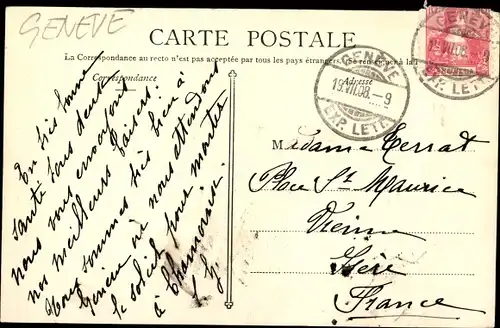 GENEVE
CARTE POSTALE
(La Correspondance au recto n'est pas acceptée par tous les pays étrangers. (Se renseigner à la
Correspondance
Adresse
En très bonne
santé tous deux
nous vous envoyons
nos meilleurs baisers.
Nous sommes très bien à
Genève où nous attendons
le soleil pour monter
à Chamonix.
GENÈVE
19.VII.08.-9
EXP. LETT.
GENÈVE
VII.08.
EXP. LETT.
HELVETIA
Madame Terrat
Place St Maurice
Vienne
Isère
France